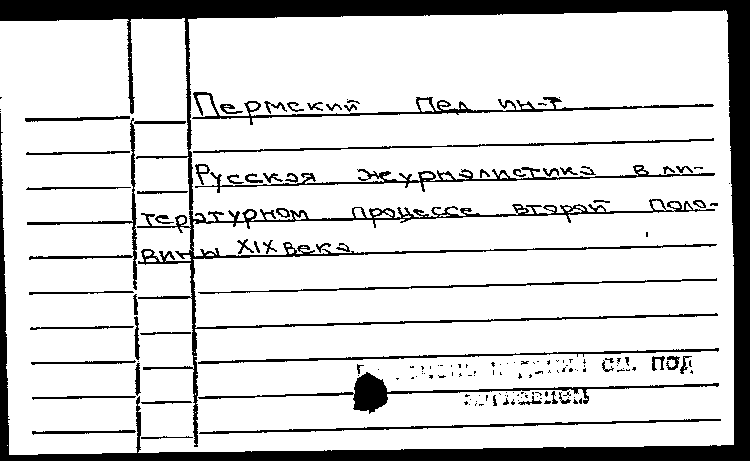 Пермский пед. ин-т.
Русская журналистика в ли-
тературном процессе второй поло-
вины XIX века
см. под
заглавием